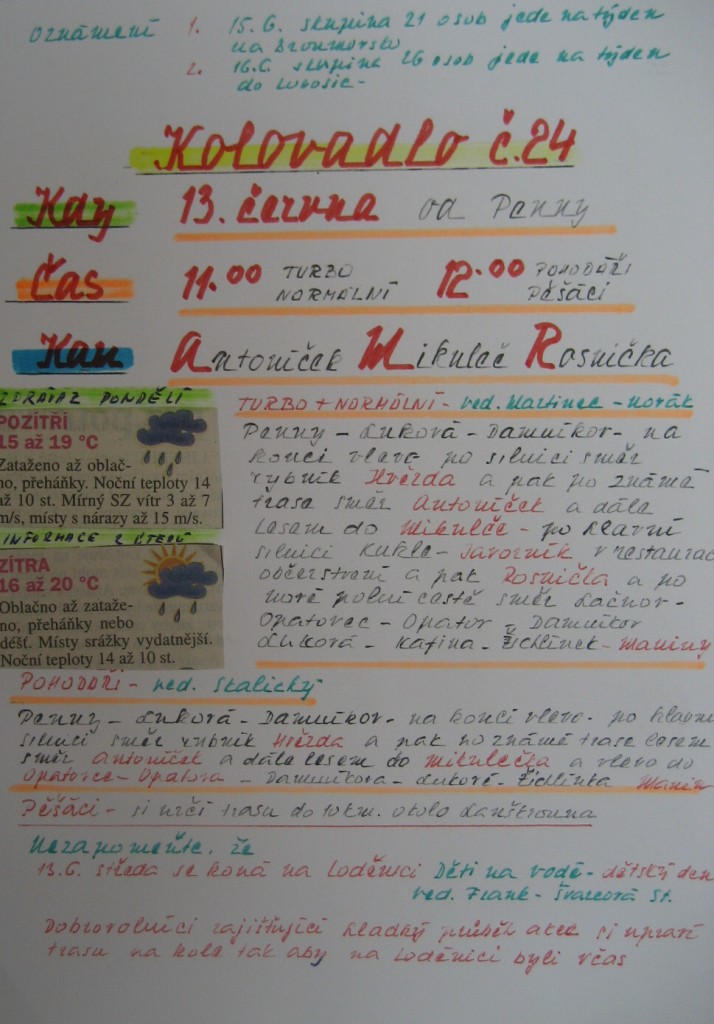 Oznámení 1. 15.6. skupina 21 osob jede na týden
na Broumovsko
2. 16.6. skupina 26 osob jede na týden
do Lubosic -
Kolovadlo č.24
Kdy 13. června od Penny
Čas 11.00 TURBO NORMÁLNÍ 12.00 POHODÁŘI PĚŠÁCI
Kam Antoníček Mikuleč Rosnička
ZPRÁVA Z PONDĚLÍ
POZÍTŘÍ
15 až 19 °C
Zataženo až oblač-
no, přeháňky. Noční teploty 14
až 10 st. Mírný SZ vítr 3 až 7
m/s, místy s nárazy až 15 m/s.
INFORMACE Z ÚTERÝ
ZÍTRA
16 až 20 °C
Oblačno až zataže-
no, přeháňky nebo
déšť. Místy srážky vydatnější.
Noční teploty 14 až 10 st.
TURBO + NORMÁLNÍ - ved. Martinec - Norák
Penny - Luková - Damníkov - na
konci vlevo po silnici směr
rybník Hvězda a pak po známé
trase směr Antoníček a dále
lesem do Mikulče - po hlavní
silnici Kukle - Javorník v restauraci
občerstvení a pak Rosnička a po
nové polní cestě směr Lačnov -
Opatovec - Opatov - Damníkov
Luková - Rafina - Žichlínek - Maniny
POHODÁŘI - ved. Skalický
Penny - Luková - Damníkov - na konci vlevo po hlavní
silnici směr rybník Hvězda a pak po známé trase lesem
směr Antoníček a dále lesem do Mikulečka a vlevo do
Opatovce - Opatova - Damníkova - Lukové - Žichlínka Maniny
Pěšáci - si určí trasu do 10 km. okolo Lanškrouna
Nezapomeňte, že
13.6. středa se koná na Loděnici Děti na vodě - dětský den
ved. Frank - Švarcová St.
Dobrovolníci zajišťující hladký průběh akce si upraví
trasu na kole tak aby na Loděnici byli včas